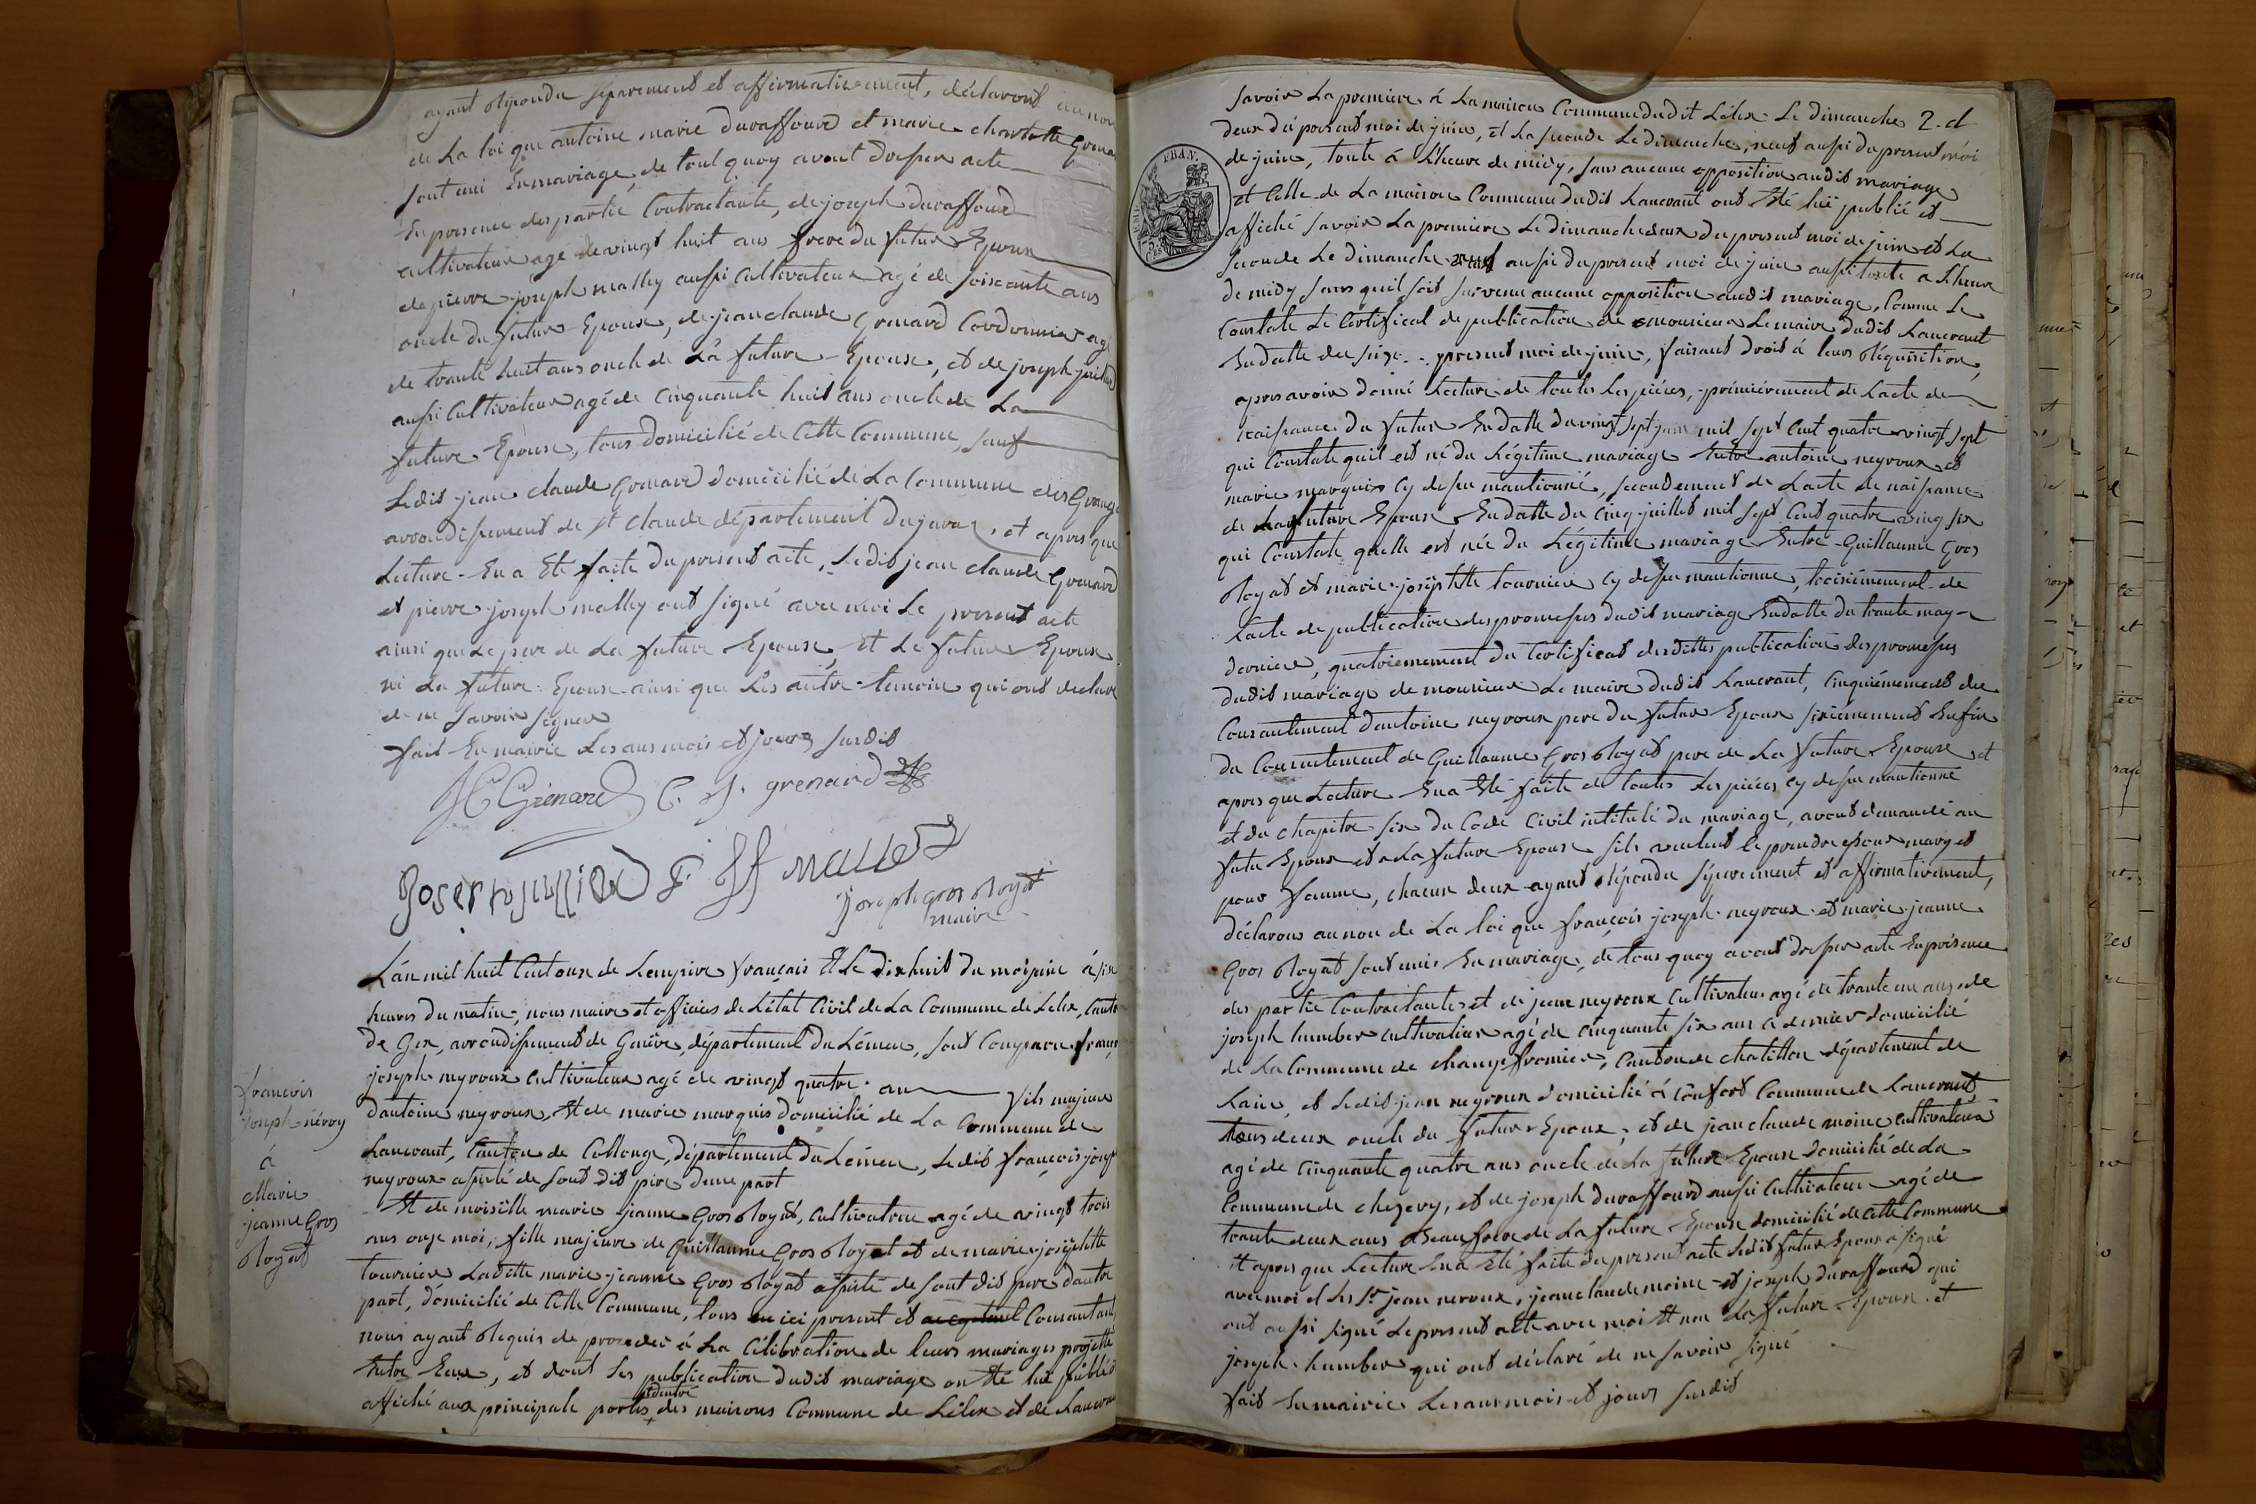 ayant répondu séparement et affirmativement, déclarons au nom
de La loi que antoine marie duraffourd et marie charlotte Grenar
sont uni En mariage, de tout quoy avont dresser acte
En presence des partie Contractante, de joseph duraffourd
cultivateur agé de vingt huit ans frere du futur Epoux
de pierre joseph mathey aussi Cultivateur agé de soixante ans
oncle du futur Epoux, de jean claude Grenard Cordonnier agé
de trante huit ans oncle de La future Epouse, et de joseph juillard
aussi Cultivateur agé de Cinquante huit ans oncle de La
future Epouse, tous domicilié de Cette Commune, sauf
Ledit jean claude Grenard domicilié de La Commune des Grange
arrondissement de st Claude département du jura, et apres que
Lecture En a Eté faite du present acte, Ledit jean claude Grenard
et pierre joseph mathey ont signé avec moi Le present acte
ainsi que Le pere de La future Epouse, Et Le futur Epoux
ni La future Epouse ainsi que Les autre temoin qui ont declaré
de ne savoir signer
fait En mairie Les ans mois et jours susdit
JC Grenard C. J. grenard
joseph juilliard P J mallet
joseph gros Royat
maire
L'an mil huit Cent onze de Lempire français Et Le dix huit du mois juin à six
heures du matin, nous maire et officier de L'état Civil de La Commune de Lelex, Canton
de Gex, arrondissement de Genève, département du Léman, sont Comparu françois
joseph neyroux cultivateur agé de vingt quatre an fils majeur
dantoine neyroux Et de marie marquis domicilié de La Commune de
Lancrant, Canton de Collonge, département du Léman, Ledit françois joseph
neyroux assisté de sont dit pere dune part
Et de moiselle marie jeanne Gros Royat, cultivatrice agé de vingt trois
ans onze moi, fille majeure de Guillaume Gros Royat et de marie josephte
tournier Ladite marie jeanne Gros Royat assisté de sont dit pere dautre
part, domicilié de Cette Commune, tous ici present et Consantant
nous ayant Requis de proceder à La Célébration de leurs mariages projetté
Entre Eux, et dont Les publication dudit mariage on Eté lu publié
affiché aux principale portes des maisons Commune de Lélex et de Lancrant
dentré
francois
joseph néroy
à
Marie
jeanne Gros
Royat
savoir La premiere à La maison Commune dudit Lélex Le dimanche 2. d
deux du present moi de juin, et La seconde Le dimanche, neuf aussi du present moi
de juin, toute à L'heure de midy, sans aucune opposition audit mariage
et Celle de La maison Commune dudit Lancrant ont Eté lu publié et
affiché savoir La premiere Le dimanche deux du present moi de juin et La
seconde Le dimanche neuf aussi du present moi de juin aussi toute a L'heure
de midy sans quil soit survenu aucune opposition audit mariage, Comme Le
Constate Le Certificat de publication de monsieur Le maire dudit Lancrant
En datte du seize present moi de juin, faisant droit à leurs Réquisition,
apres avoir donné Lecture de toutes Les pièces, premièrement de L'acte de
naissance du futur En datte du vingt sept juin mil sept Cent quatre vingt sept
qui Constate quil est né du Légitime mariage Entre antoine neyroux et
marie marquis Cy dessu mantionné, secondement de L'acte de naissance
de La future Epouse En datte du Cinq juillet mil sept Cent quatre vingt six
qui Constate quelle est née du Légitime mariage Entre Guillaume Gros
Royat et marie josephte tournier Cy dessu mantionné, troisiémement de
L'acte de publication des promesses dudit mariage En datte du trante may
dernier, quatriemement du Certificat desdittes publication des promesses
dudit mariage de monsieur Le maire dudit Lancrant, Cinquiémement du
Consantement dantoine neyroux pere du futur Epoux sixiémement Enfin
du Consentement de Guillaume Gros Royat pere de La future Epouse et
apres que Lecture En a Eté faite de toutes Les pièces Cy dessu mantionné
et du chapitre six du Code Civil intitulé du mariage, avont demandé au
futur Epoux et a La future Epouse sils veulent se prendre pour mary et
pour famme, chacun deux ayant Répondu séparement et affirmativement,
déclarons au nom de La loi que françois joseph neyroux et marie jeanne
Gros Royat sont unis En mariage, de tous quoy avons dresser acte En présence
des partie Contractantes et de jean neyroux Cultivateur agé de trante un ans, de
joseph humber cultivateur agé de Cinquante six ans a dernier domicilié
de La Commune de Champfromier, Canton de Chatillon département de
Lain, et Ledit jean neyroux domicilié à Confort Commune de Lancrant
tous deux oncle du futur Epoux; et de jean claude moine cultivateur
agé de Cinquante quatre ans oncle de La future Epouse domicilié de La
Commune de chezery, et de joseph duraffourd aussi Cultivateur agé de
trante deux ans Beaufrere de La future Epouse domicilié de Cette Commune
Et apres que Lecture En a Eté faite du present acte Ledit futur Epoux a signé
avec moi et Les Sr jean neroux, jean claude moine et joseph duraffourd qui
ont aussi signé Le present acte avec moi Et non La future Epouse et
joseph humber qui ont déclaré de ne savoir signé
fait En mairie Les ans mois et jours susdit